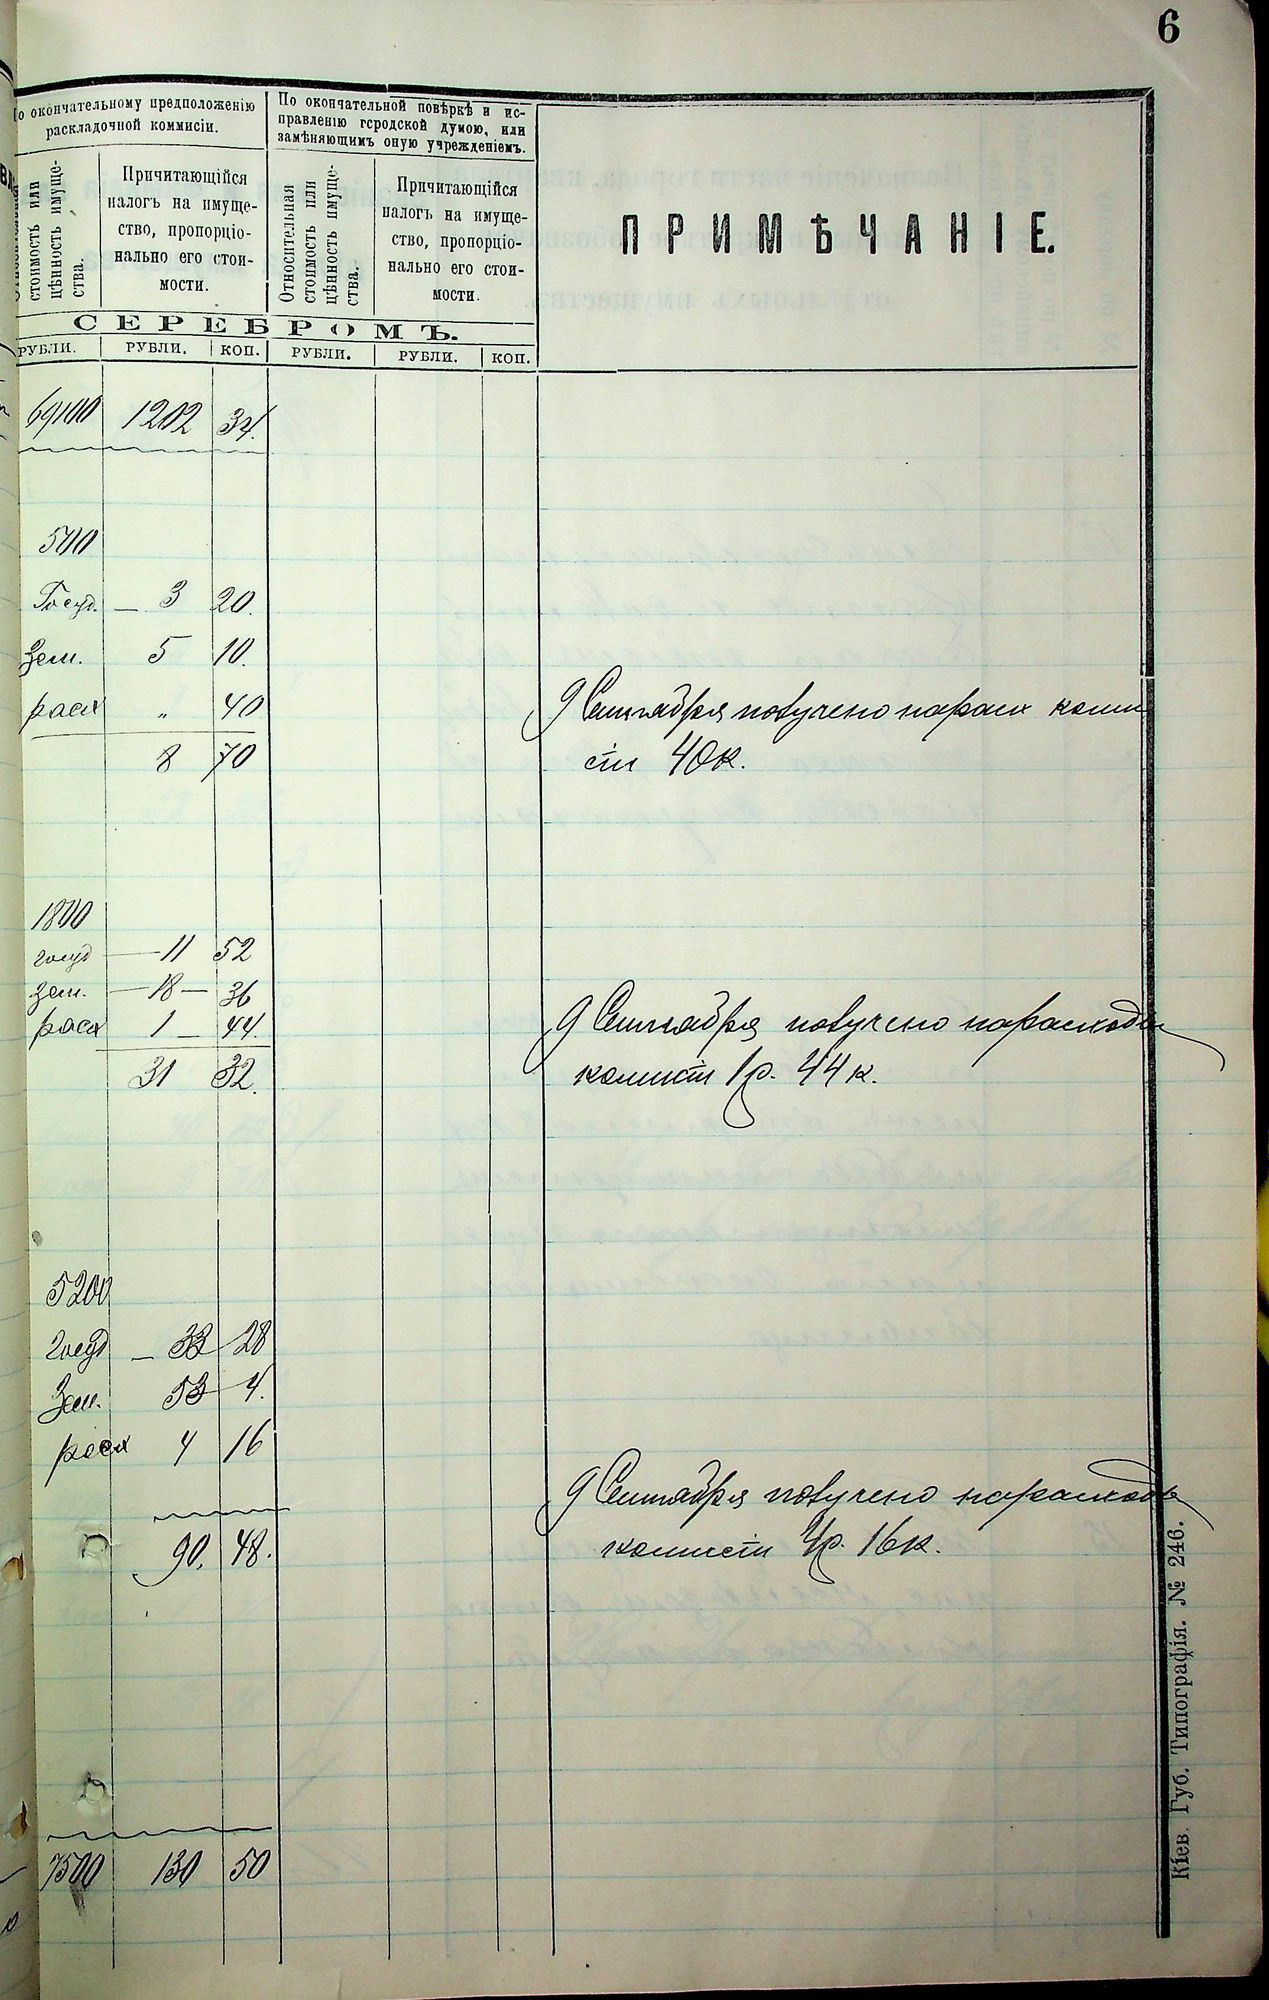 6
По окончательному предположенію
раскладочной коммисіи.
По окончательной повѣркѣ и ис-
правленію городской думою, или
замѣняющимъ оную учрежденіемъ.
Относительная
стоимость или
цѣнность имуще-
ства.
Причитающійся
налогъ на имуще-
ство, пропорціо-
нально его стои-
мости.
Относительная
стоимость или
цѣнность имуще-
ства.
Причитающійся
налогъ на имуще-
ство, пропорціо-
нально его стои-
мости.
ПРИМѢЧАНІЕ.
СЕРЕБРОМЪ.
РУБЛИ. РУБЛИ. КОП. РУБЛИ. РУБЛИ. КОП.
69100 1202 34.
500
Госуд. — 3 20.
Зем. 5 10.
расх „ 40
9 Сентября получено на расх коми
сіи 40к.
8 70
1800
госуд — 11 52
зем. — 18 — 36
расх 1 — 44.
9 Сентября получено на расходы
комисіи 1р. 44к.
31 32.
5200
госуд — 33 28
Зем. 53 4.
расх 4 16
9 Сентября получено на расходы
комисіи 4р. 16к.
90. 48.
7500 130 50
Кіев. Губ. Типографія. № 246.